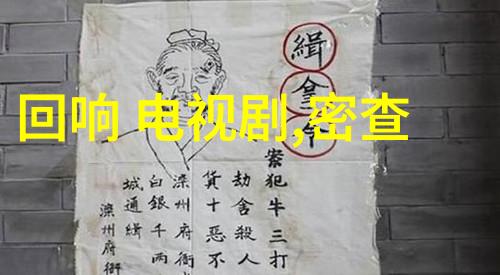 回响 电视剧,密查
緝拿令
案犯牛三打
劫舍殺人
貨十惡不
滦州府衙
白銀千兩
城通緝
滦州府衙